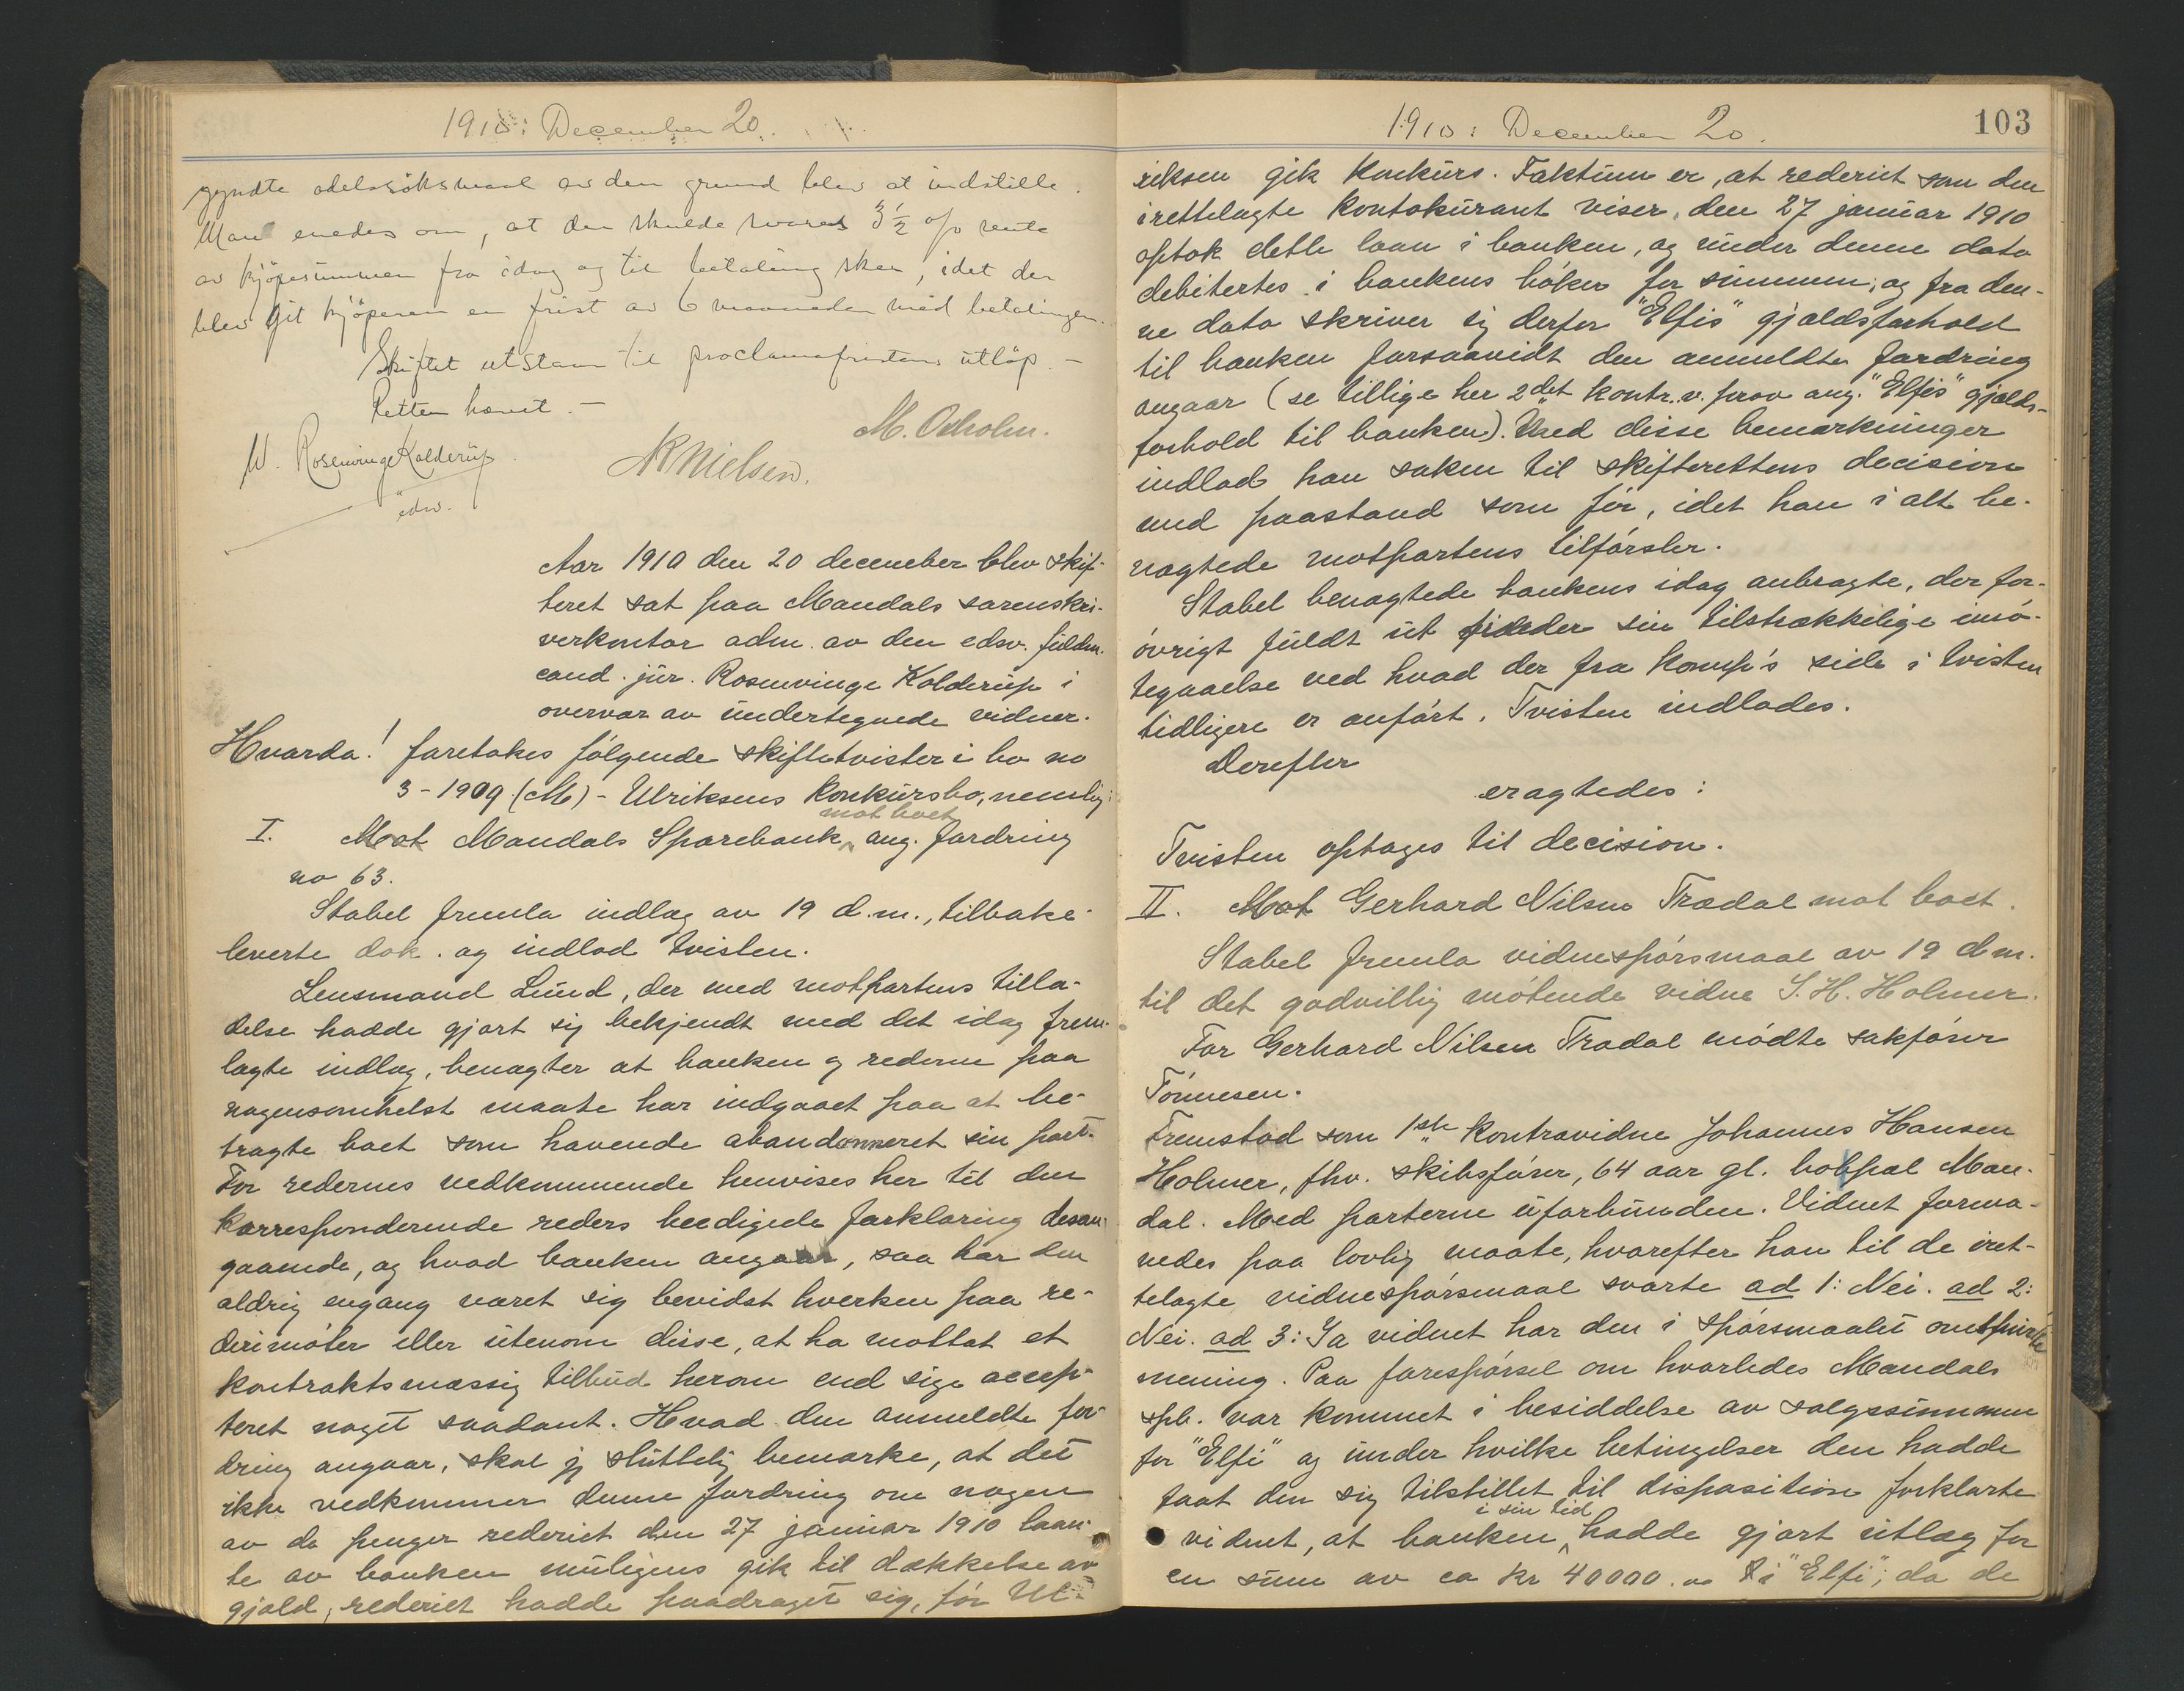 1910: December 20.
gyndte odelssöksmaal av den grund blev at indstille.
Man enedes om, at der skulde svares 3 1/2 o/o rente
av kjöpesummen fra idag og til betaling sker, idet der
blev git kjöperen en frist av 6 maaneder med betalingen.
Skiftet utstaar til proclamafristens utlöp. –
Retten hævet. –
M. Osholm.
W. Rosenvinge Kolderup.
edsv.
N Nielsen.
Aar 1910 den 20 decemeber blev skif-
teret sat paa Mandals sorenskri-
verkontor adm. av den edsv. fuldm.
cand. jur. Rosenvinge Kolderup i
overvær av undertegnede vidner.
Hvorda! foretokes følgende skiftetvister i bo no
3-1909 (M) - Ulriksens konkursbo, nemlig:
mot boet
I. Mot Mandals Sparebank ang. fordring
no 63.
Stabel fremla indlæg av 19 d.m., tilbake-
leverte dok. og indlod tvisten.
Lensmand Lund, der med motpartens tilla-
delse hadde gjort sig bekjendt med det idag frem-
lagte indlæg, benægter at banken og rederne paa
nogensomhelst maate har indgaaet paa at be-
tragte boet som havende abandonneret sin part.
For redernes vedkommende henvises her til den
korresponderende reders beedigede forklaring desan-
gaaende, og hvad banken angaar, saa har den
aldrig engang været sig bevidst hverken paa re-
derimøter eller utenom disse, at ha mottat et
kontraktsmæssig tilbud herom end sige accep-
teret noget saadant. Hvad den anmeldte for-
dring angaar, skal jg sluttelig bemærke, at det
ikke vedkommer denne fordring om nogen
av de penger rederiet den 27 januar 1910 laan-
te av banken muligens gik til dækkelse av
gjæld, rederiet hadde paadraget sig, før Ul-
1910: December 20.
103
riksen gik konkurs. Faktum er, at rederiet som den
irettelagte kontokurant viser, den 27 januar 1910
optok dette laan i banken, og under denne dato
debitertes i bankens bøker for summen; og fra den-
ne dato skriver sig derfor "Elfis" gjældsforhold
til banken forsaavidt den anmeldte fordring
angaar (se tillige her 2det kontr.v. prov ang. "Elfis" gjælds-
forhold til banken). Med disse bemærkninger
indlod han saken til skifterettens decision
med paastand som før, idet han i alt be-
nægtede motpartens tilførsler.
Stabel benægtede bankens idag anbragte, der for-
øvrigt fuldt ut finder sin tilstrækkelige imø-
tegaaelse ved hvad der fra komp's side i tvisten
tidligere er anført. Tvisten indlodes.
Derefter
eragtedes:
Tvisten optages til decision.
II. Mot Gerhard Nilsen Trædal mot boet.
Stabel fremla vidnespørsmaal av 19 d.m.
til det godvillig møtende vidne J. H. Holmer.
For Gerhard Nilsen Trædal mødte sakfører
Tönnesen.
Fremstod som 1ste kontravidne Johannes Hansen
Holmer, fhv. skibsfører, 64 aar gl. bopæl Man-
dal. Med parterne uforbunden. Vidnet forma-
nedes paa lovlig maate, hvorefter han til de iret-
telagte vidnespørsmaal svarte ad 1: Nei. ad 2:
Nei. ad 3: Ja vidnet har den i spørsmaalet omspurte
mening. Paa forespørsel om hvorledes Mandals
spb. var kommet i besiddelse av salgssummen
for "Elfi" og under hvilke betingelser den hadde
faat den sig tilstillet til disposition forklarte
i sin tid
vidnet, at banken hadde gjort utlæg for
en sum av ca kr 40000.00 i "Elfi"; da de